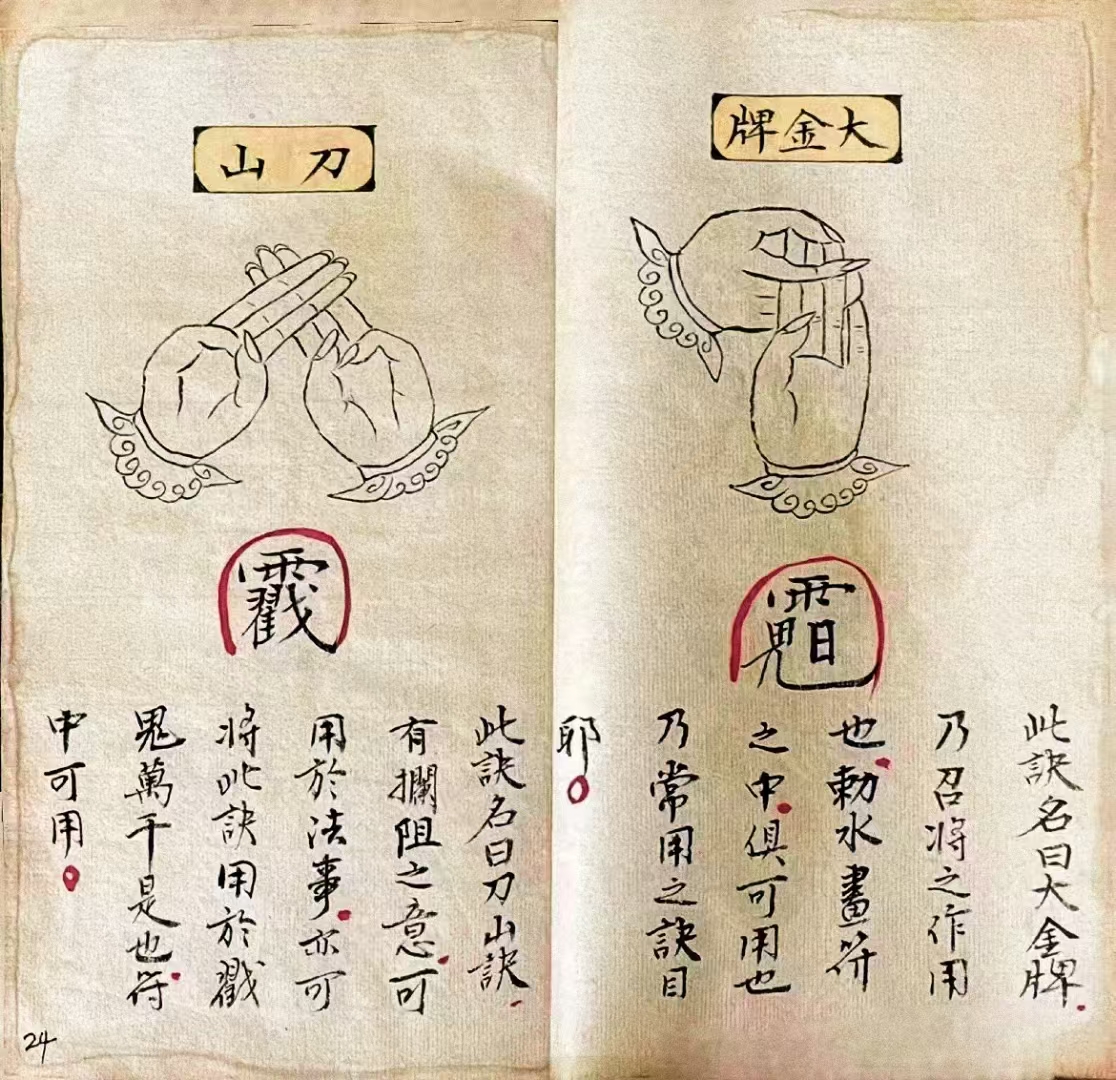 大金牌
此訣名曰大金牌。
乃召将之作用
也。勅水畫符
之中。俱可用也
乃常用之訣目
耶。
刀山
此訣名曰刀山訣。
有攔阻之意。可
用於法事。亦可
将此訣用於戳
鬼萬千是也。符
中可用。
24